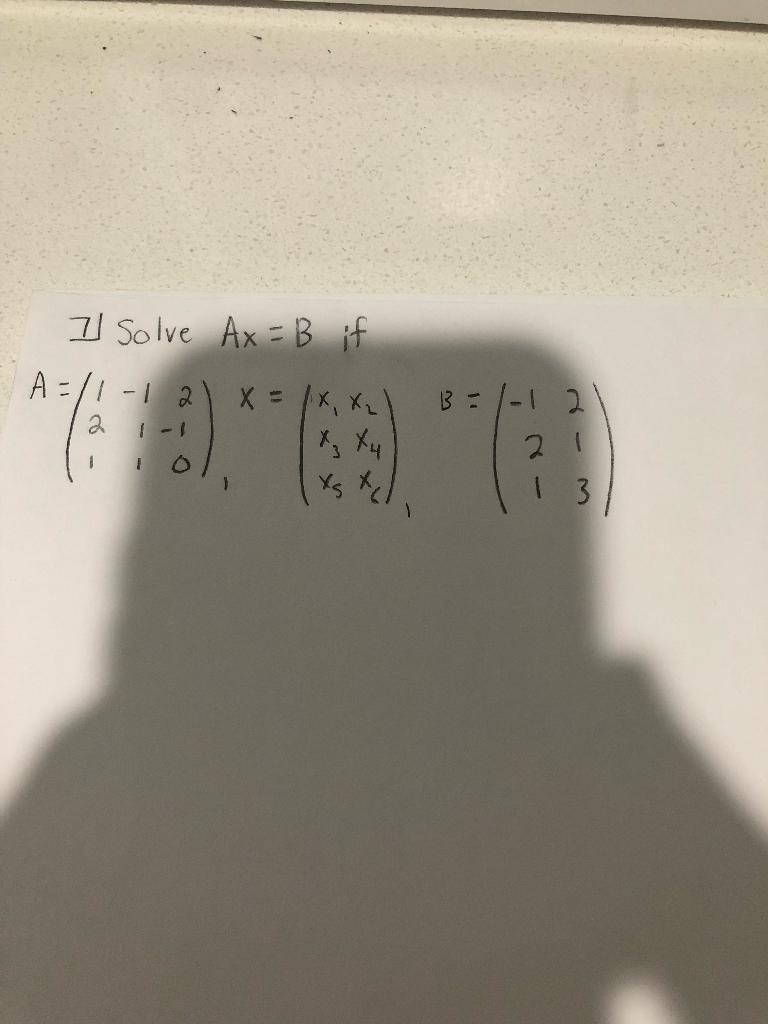 7] Solve Ax = B if
A = (1 -1 2
2 1 -1
1 1 0), X = (x₁ x₂
x₃ x₄
x₅ x₆), B = (-1 2
2 1
1 3)